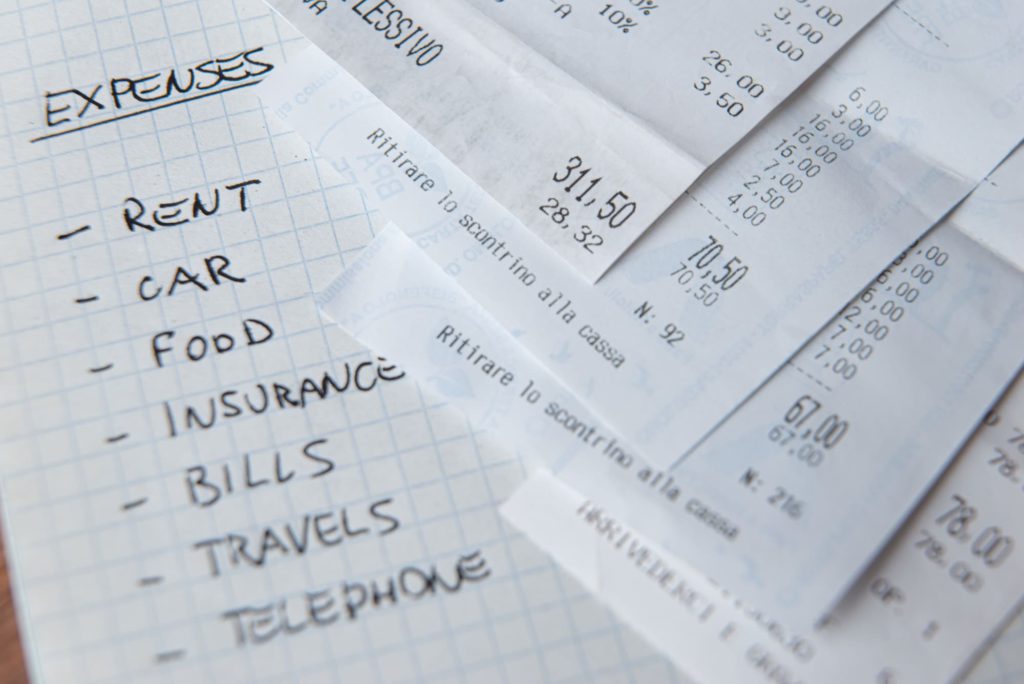 EXPENSES
- RENT
- CAR
- FOOD
- INSURANCE
- BILLS
- TRAVELS
- TELEPHONE
10%
3,00
3,00
26.00
3,50
PLESSIVO
311,50
28,32
Ritirare lo scontrino alla cassa
6,00
3,00
16,00
16,00
7,00
2,50
4,00
70,50
70,50
N: 92
Ritirare lo scontrino alla cassa
6,00
2,00
7,00
7,00
67,00
67,00
N: 216
78.00
78.00
ARRIVEDERCI E